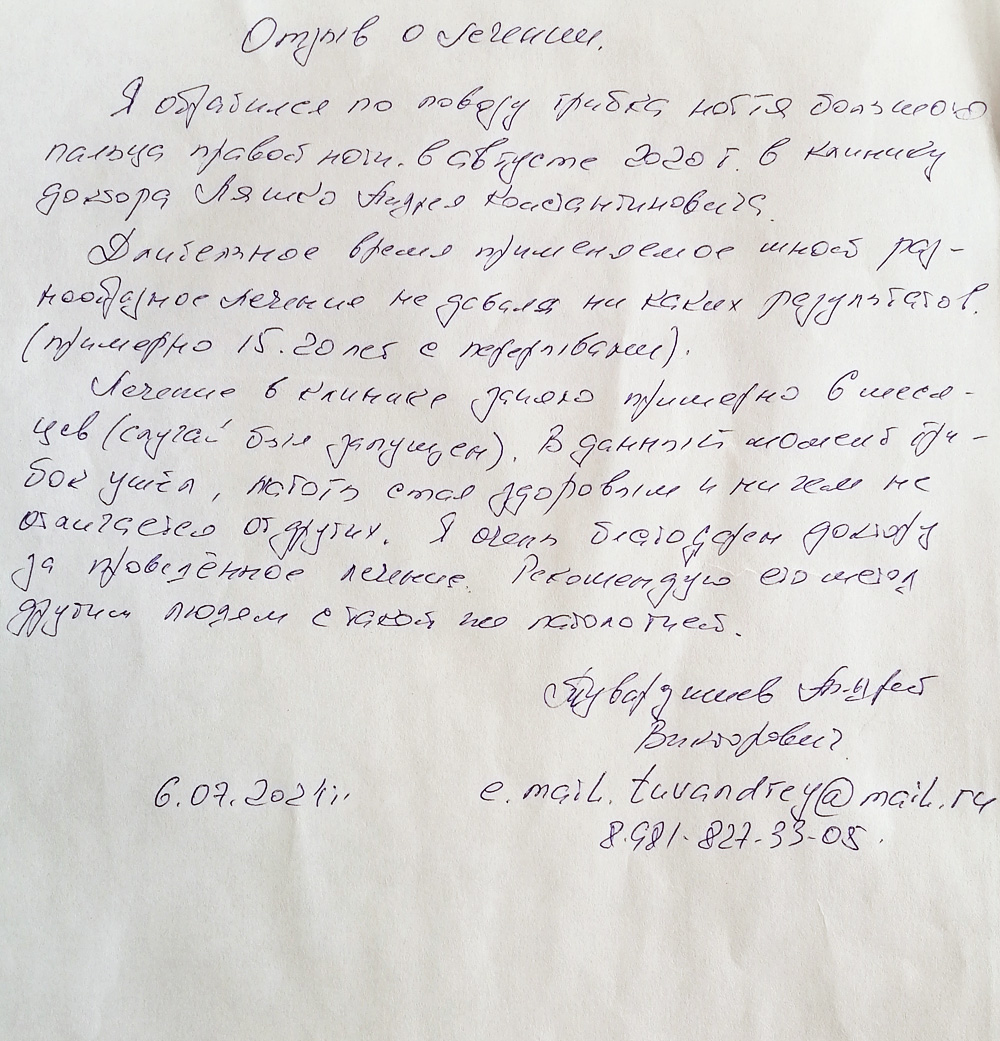 Отзыв о лечении.
Я обратился по поводу грибка ногтя большого
пальца правой ноги. в августе 2020 г. в клинику
доктора Ляшко Андрея Константиновича.
Длительное время применяемое мной раз-
нообразное лечение не давала ни каких результатов.
(примерно 15-20 лет с перерывами).
Лечение в клинике заняло примерно 6 меся-
цев (случай был запущен). В данный момент гри-
бок ушёл, ноготь стал здоровым и ни чем не
отличается от других. Я очень благодарен доктору
за проведённое лечение. Рекомендую его метод
другим людям с такой же патологией.
Андрей
Викторович
6.07.2021г. e.mail. tuvandrey@mail.ru
8.981-827-33-05.